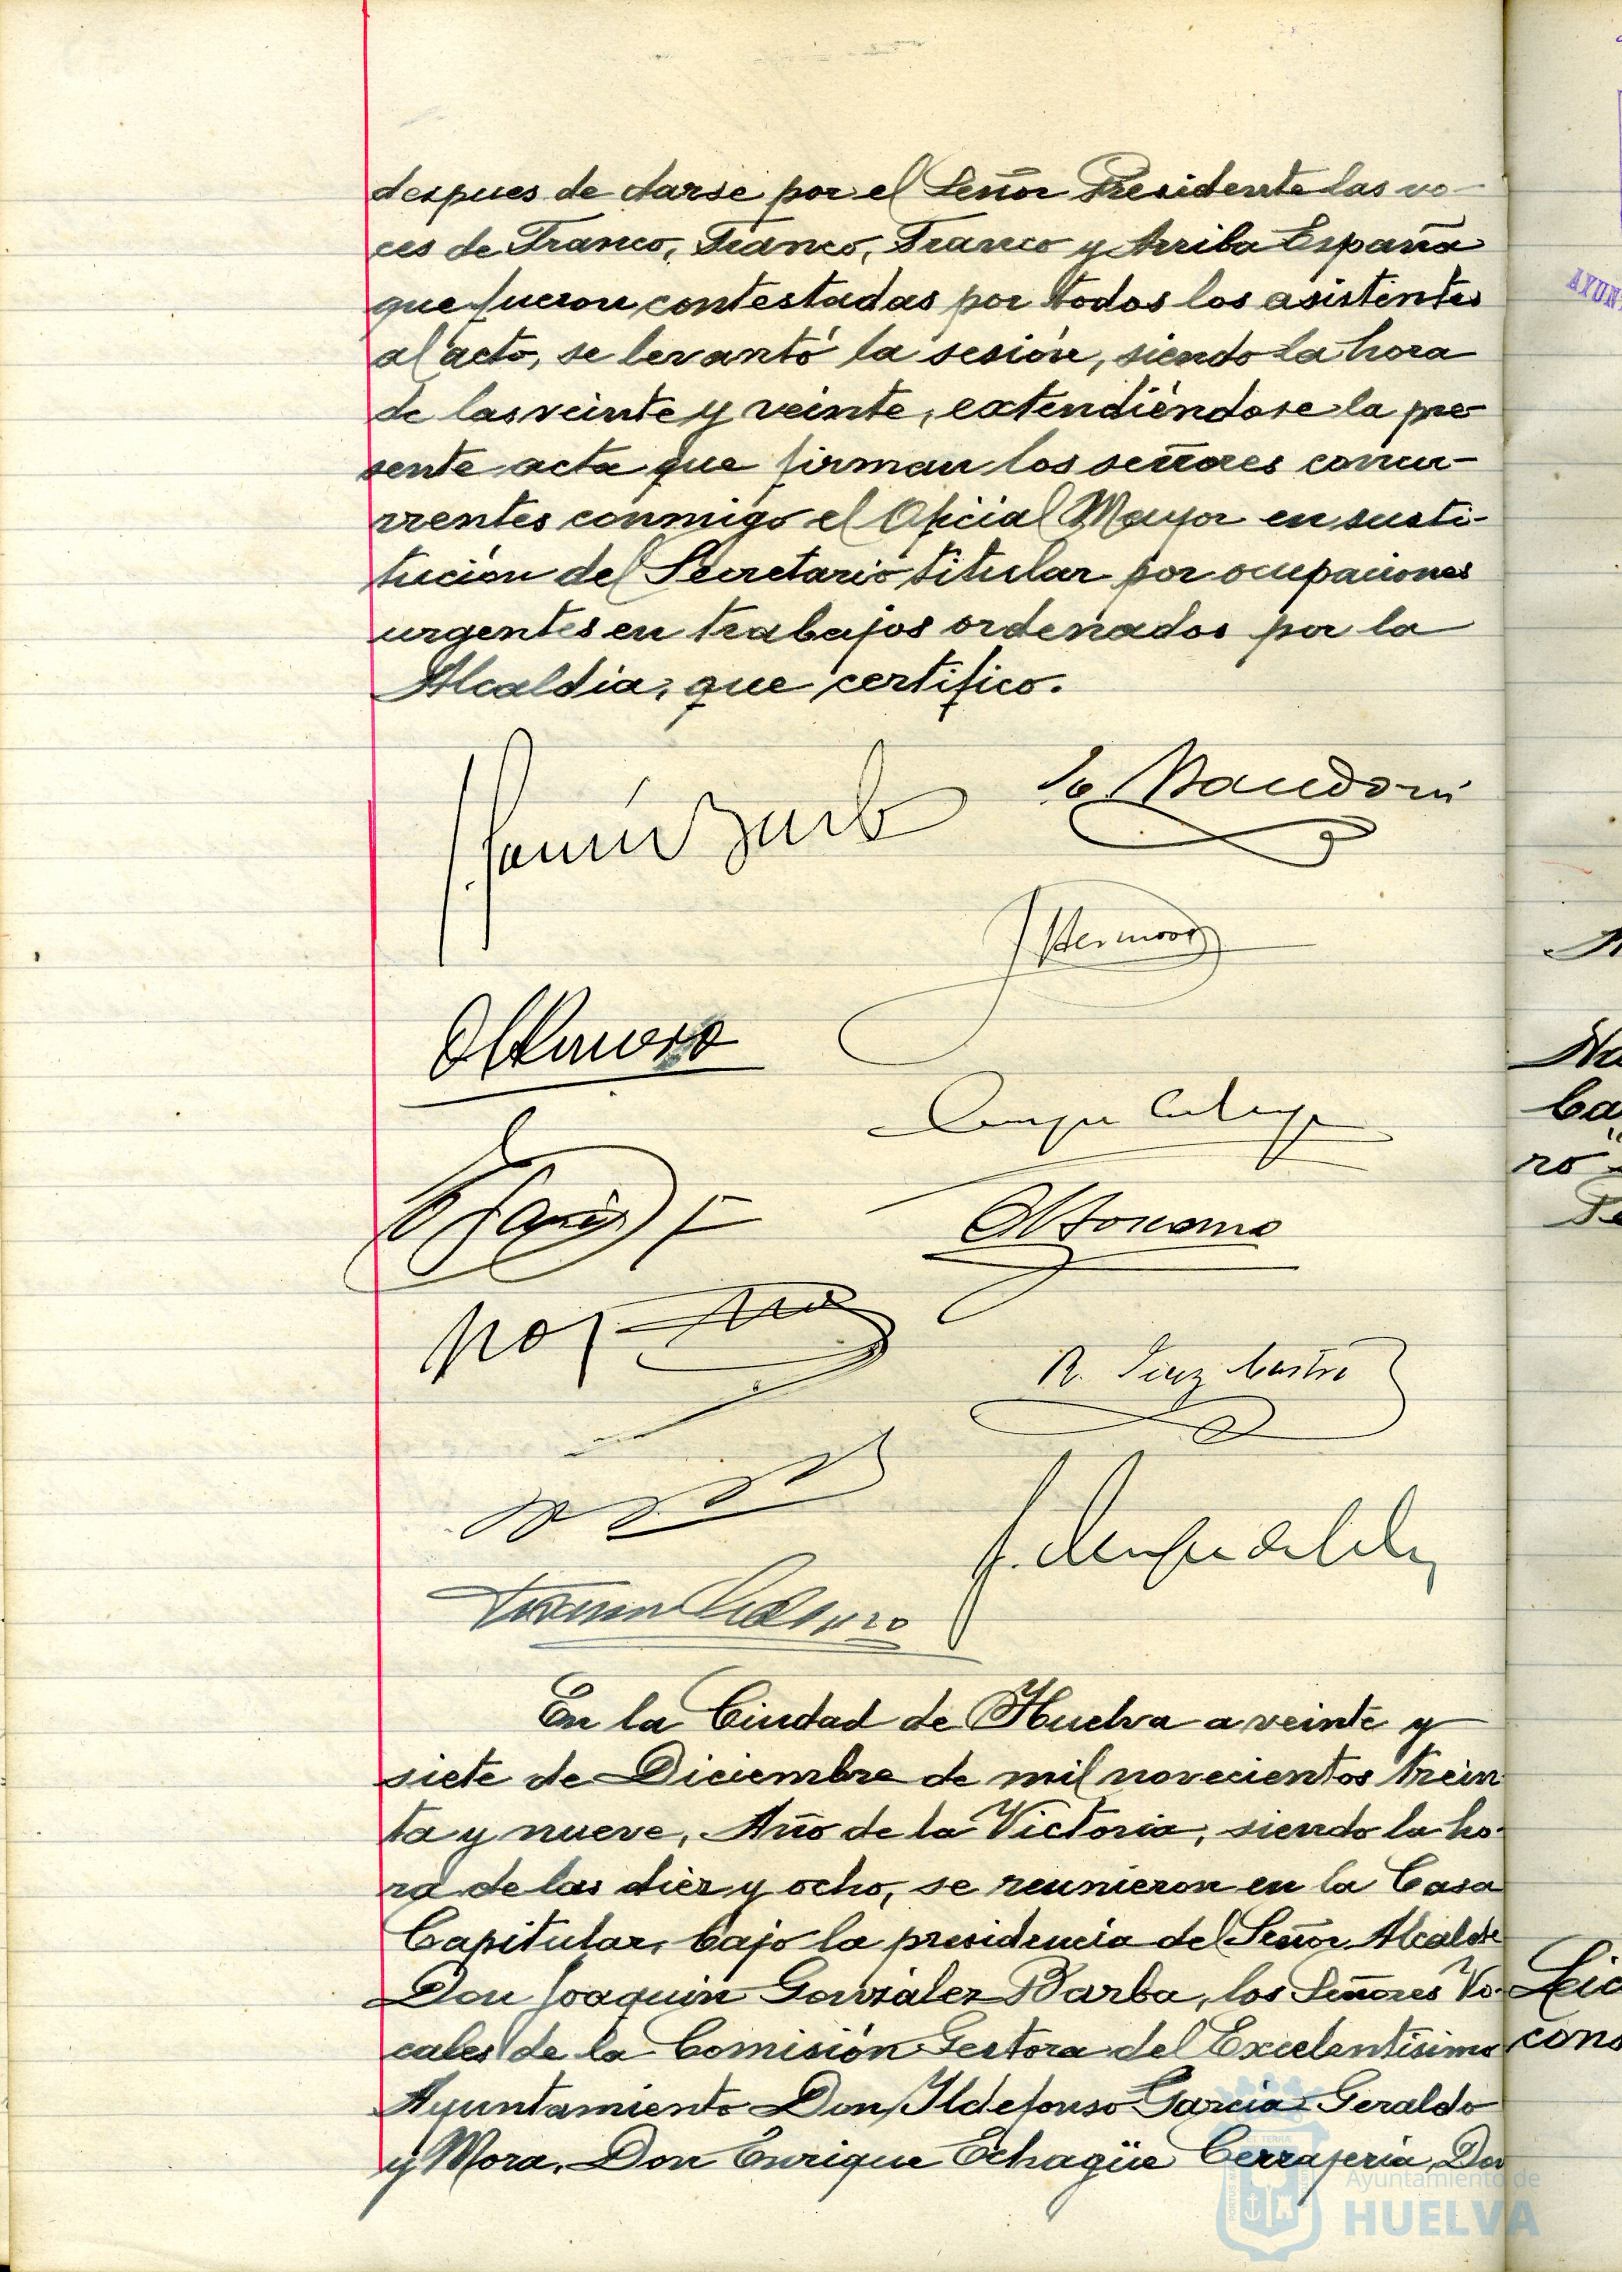 despues de darse por el Señor Presidente las vo-
ces de Franco, Franco, Franco y Arriba España
que fueron contestadas por todos los asistentes
al acto, se levantó la sesión, siendo la hora
de las veinte y veinte, extendiéndose la pre-
sente acta que firman los señores concu-
rrentes conmigo el Oficial Mayor en susti-
tución del Secretario titular por ocupaciones
urgentes en trabajos ordenados por la
Alcaldia, que certifico.
J. Hermoso
R. Diaz Castro
En la Ciudad de Huelva a veinte y
siete de Diciembre de mil novecientos trein
ta y nueve, Año de la Victoria, siendo la ho-
ra de las diez y ocho, se reunieron en la Casa
Capitular, bajo la presidencia del Señor Alcalde
Don Joaquin González Barba, los Señores Vo-
cales de la Comisión Gestora del Excelentísimo
Ayuntamiento Don Ildefonso Garcia Geraldo
y Mora, Don Enrique Echagüe Cerrajeria, Don
Ayuntamiento de
HUELVA